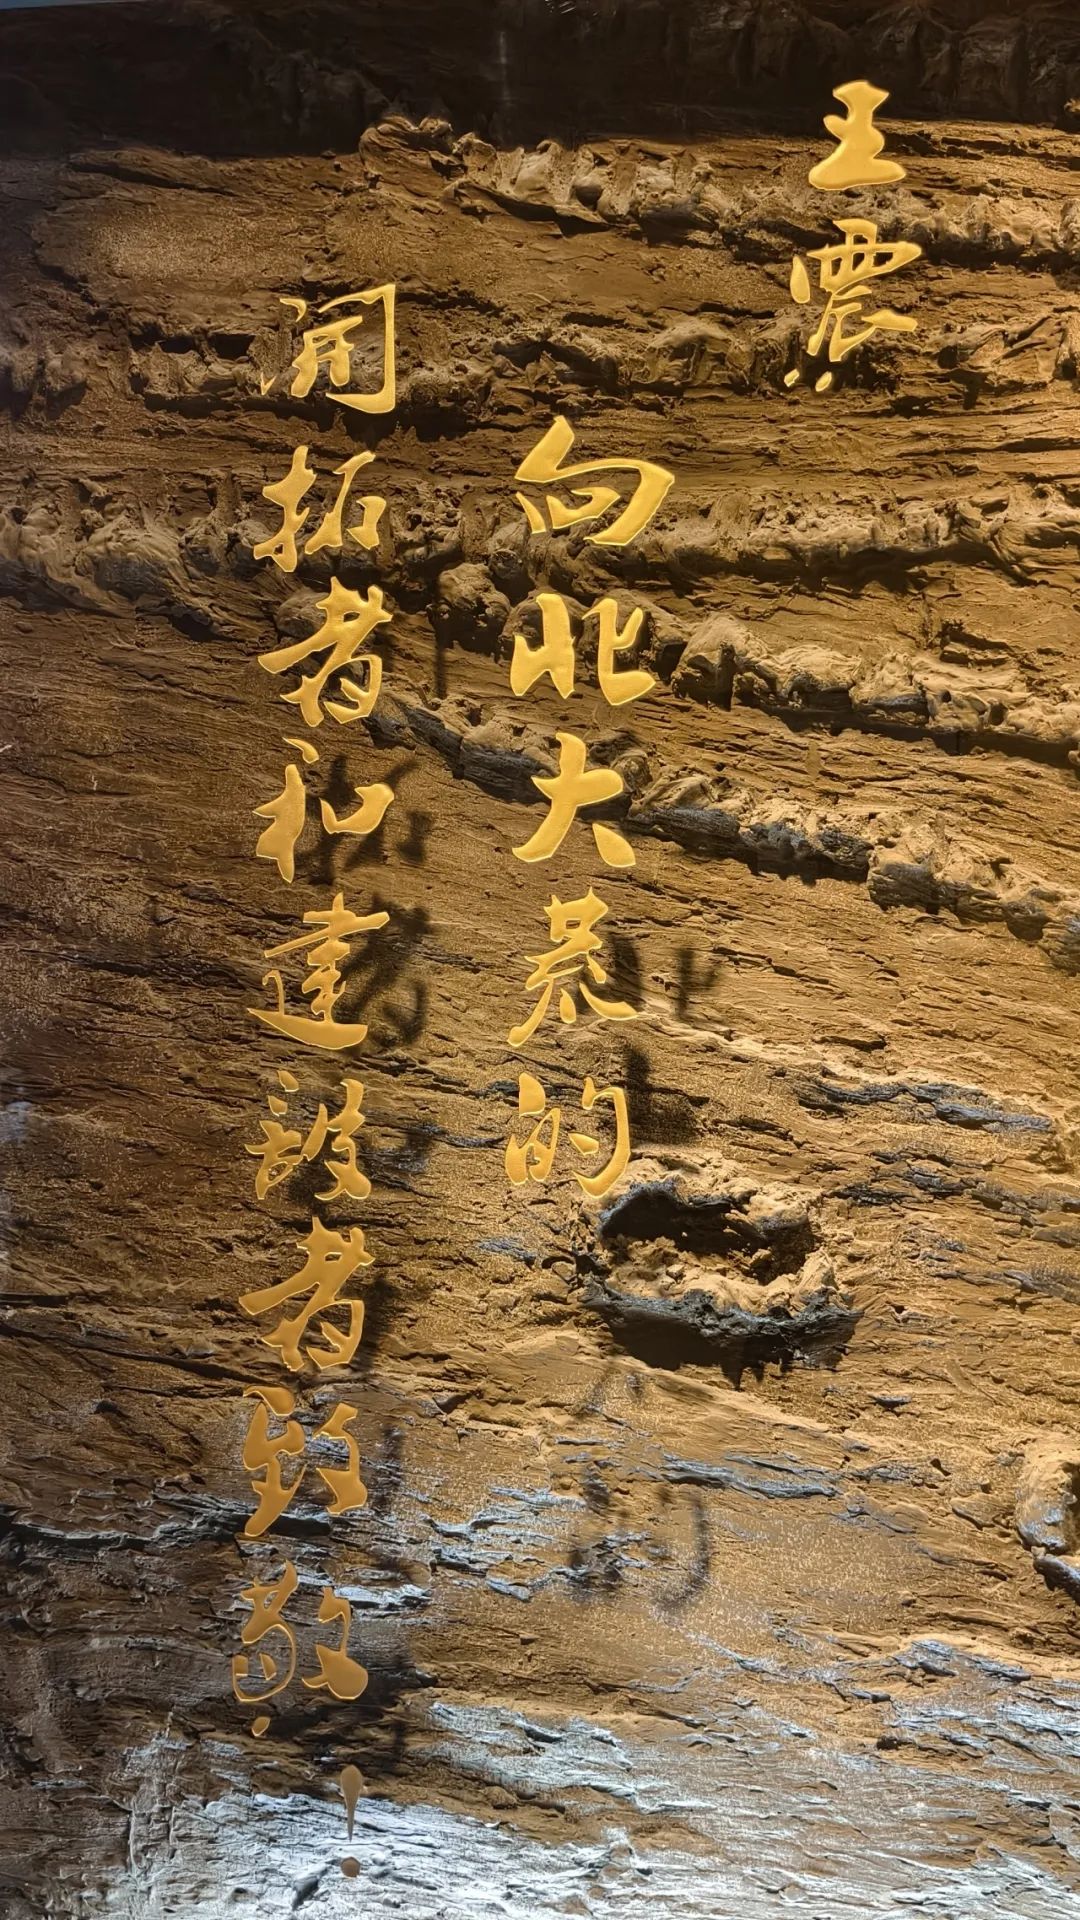 王震:
向北大荒的
开拓者和建设者致敬!